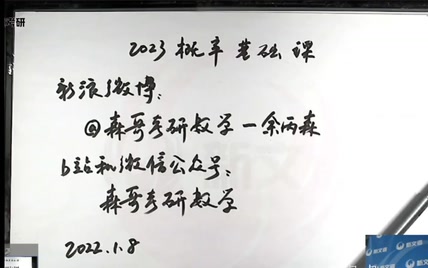 2023 概率基础课
新浪微博：
@森哥考研数学一余丙森
b站和微信公众号：
森哥考研数学
2022.1.8
新文道